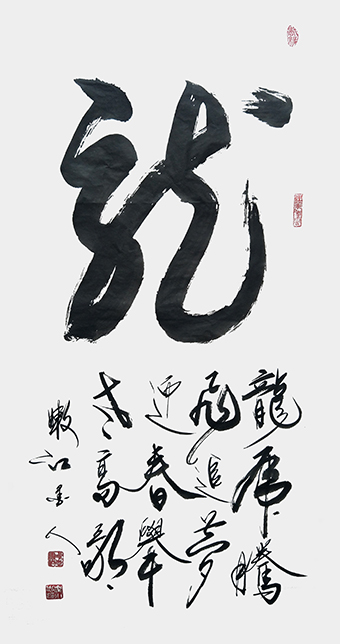 龍
龍虎騰
飛追夢
迎春舉
高歌
江墨人